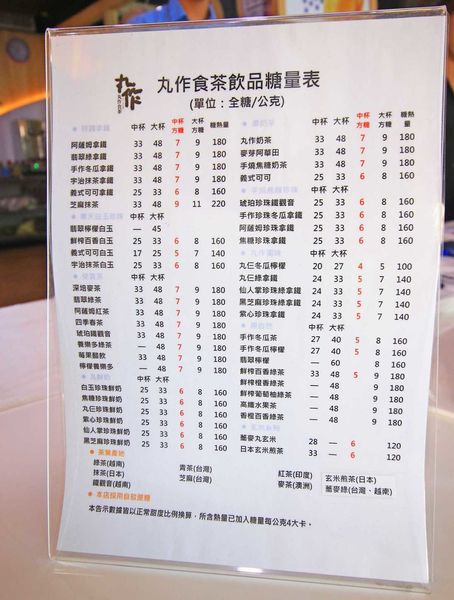 丸作
丸作食茶
丸作食茶飲品糖量表
(單位：全糖/公克)
中杯 大杯 中杯方糖 大杯方糖 糖熱量
阿薩姆拿鐵 33 48 7 9 180
翡翠綠拿鐵 33 48 7 9 180
手作冬瓜拿鐵 33 48 7 9 180
宇治抹茶拿鐵 33 48 7 9 180
義式可可拿鐵 25 33 6 8 160
芝麻抹茶 33 48 9 11 220
中杯 大杯
翡翠檸檬白玉 — 45
鮮榨百香白玉 25 33 6 8 160
義式可可白玉 17 25 5 7 140
宇治抹茶白玉 25 33 6 8 160
中杯 大杯
深焙麥茶 33 48 7 9 180
翡翠綠茶 33 48 7 9 180
阿薩姆紅茶 33 48 7 9 180
四季春茶 33 48 7 9 180
琥珀鐵觀音 33 48 7 9 180
養樂多綠茶 — 48 7 9 180
莓果醋飲 33 48 7 9 180
檸檬養樂多 — 48 7 9 180
中杯 大杯
白玉珍珠鮮奶 25 33 6 8 160
焦糖珍珠鮮奶 25 33 6 8 160
丸仨珍珠鮮奶 25 33 6 8 160
紫心珍珠鮮奶 25 33 6 8 160
仙人掌珍珠鮮奶 25 33 6 8 160
黑芝麻珍珠鮮奶 25 33 6 8 160
中杯 大杯 中杯方糖 大杯方糖 糖熱量
丸作奶茶 33 48 7 9 180
麥芽阿華田 33 48 7 9 180
手燒焦糖奶茶 33 48 7 9 180
義式可可 25 33 6 8 160
中杯 大杯
琥珀珍珠鐵觀音 25 33 6 8 160
手作珍珠冬瓜拿鐵 25 33 6 8 160
阿薩姆珍珠拿鐵 25 33 6 8 160
焦糖珍珠拿鐵 25 33 6 8 160
中杯 大杯
丸仨冬瓜檸檬 20 27 4 5 100
丸仨綠拿鐵 24 33 5 7 140
仙人掌珍珠綠拿鐵 24 33 5 7 140
黑芝麻珍珠綠拿鐵 24 33 5 7 140
紫心珍珠拿鐵 24 33 5 7 140
中杯 大杯
手作冬瓜茶 27 40 5 8 160
手作冬瓜檸檬 27 40 5 8 160
翡翠檸檬 — 60 8 160
鮮榨百香綠茶 33 48 5 9 180
鮮榨橙香綠茶 — 48 9 180
鮮榨葡萄柚綠茶 — 48 9 180
高纖水果茶 — 48 9 180
香橙百香綠茶 — 48 9 180
中杯 大杯
蕎麥丸玄米 28 — 6 120
日本玄米煎茶 33 — 6 120
茶葉產地
綠茶(越南) 青茶(台灣) 紅茶(印度) 玄米煎茶(日本)
抹茶(日本) 芝麻(台灣) 麥茶(澳洲) 蕎麥綠(台灣、越南)
鐵觀音(越南)
本店採用自取蔗糖
本告示數據皆以正常甜度比例換算，所含熱量已加入糖量每公克4大卡。